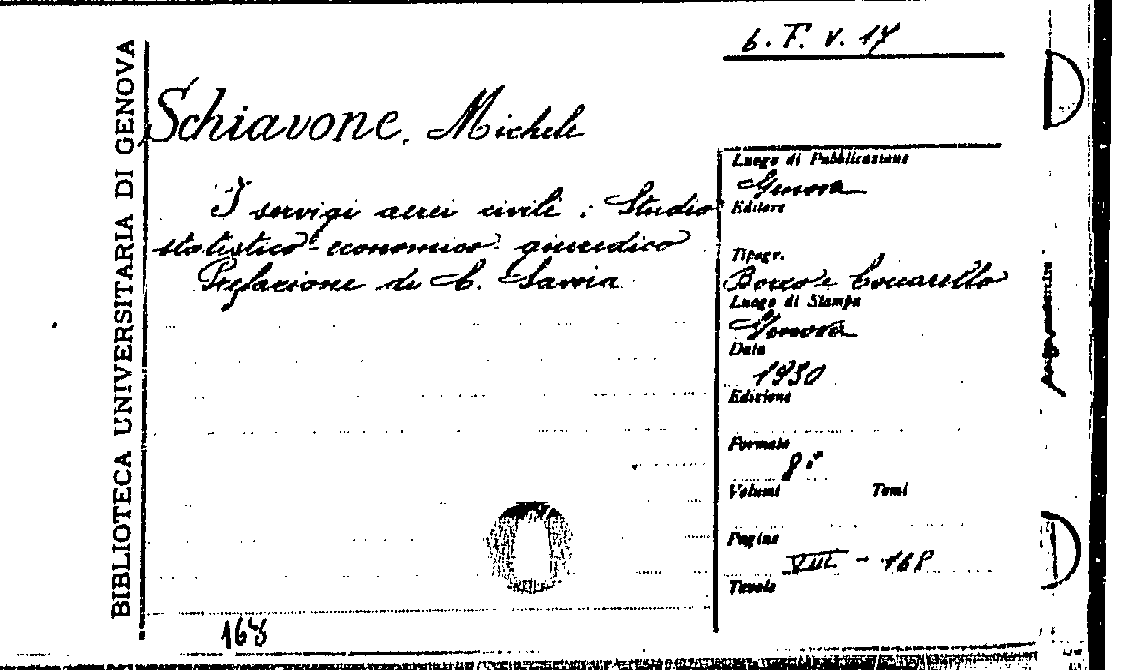 6. F. V. 17
BIBLIOTECA UNIVERSITARIA DI GENOVA
Schiavone, Michele
I servigi aerei civili : Studio
statistico - economico - giuridico
Prefazione di C. Savoia
Luogo di Pubblicazione
Genova
Editore
Tipogr.
Bozzo e Coccarello
Luogo di Stampa
Genova
Data
1930
Edizione
Formato
8°
Volumi Tomi
Pagine
VIII - 168
Tavole
168